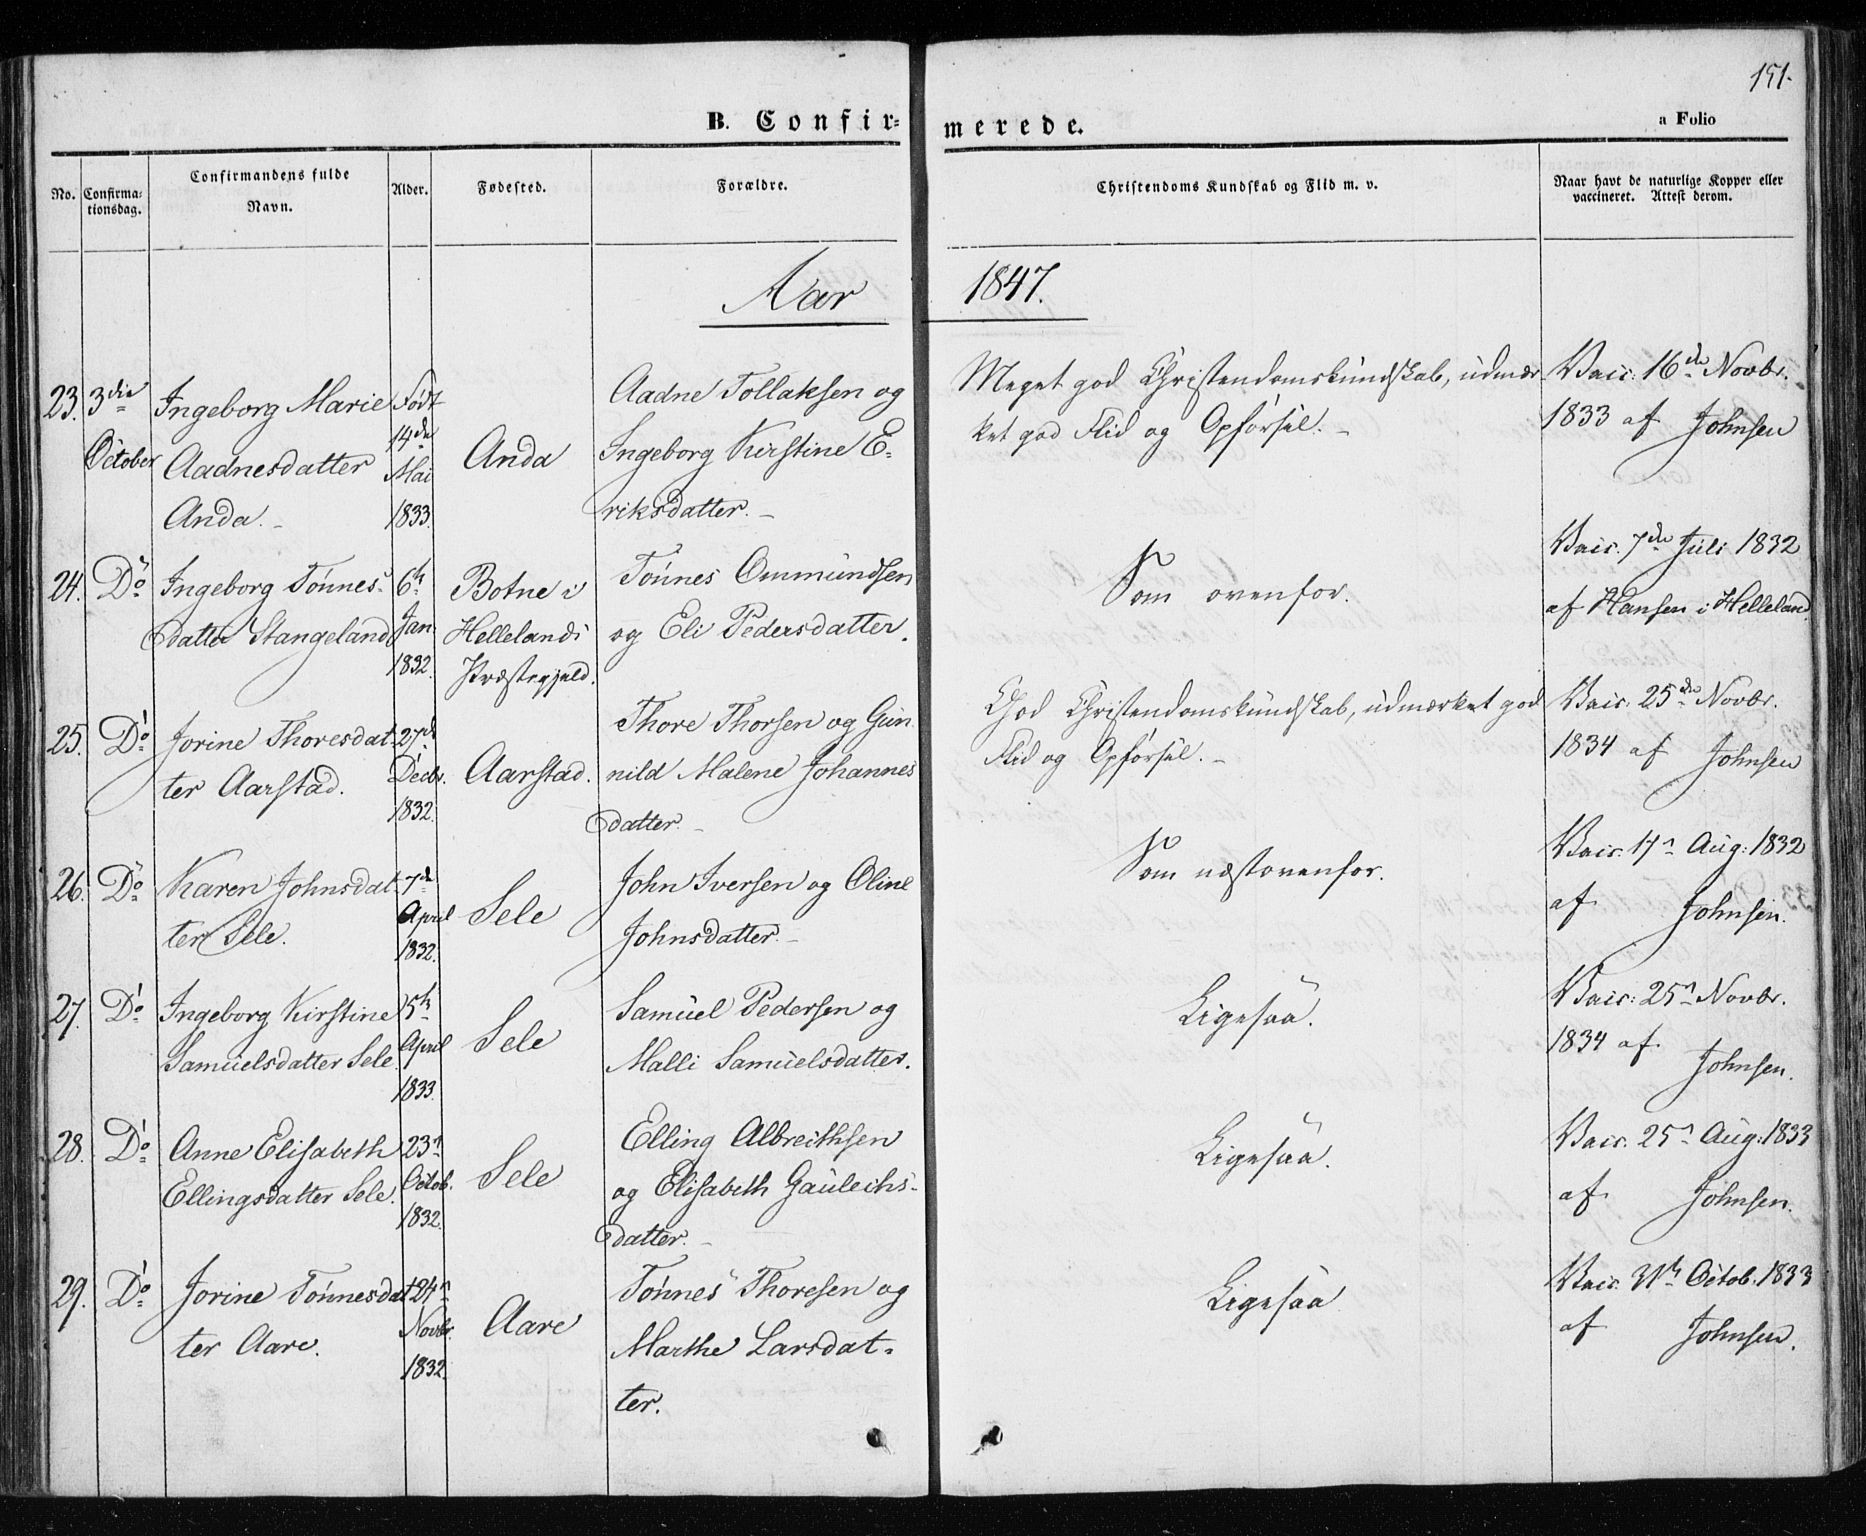 151.
B. Confir-
merede.
a Folio
No.
Confirma-
tionsdag.
Confirmandens fulde
Navn.
Alder.
Fødested.
Forældre.
Christendoms Kundskab og Flid m. v.
Naar havt de naturlige Kopper eller
vaccineret. Attest derom.
Aar
1847.
23.
3die
October
Ingeborg Marie
Aadnesdatter
Anda.
Født
14de
Mai
1833.
Anda
Aadne Tollaksen og
Ingeborg Kirstine E-
riksdatter.
Meget god Christendomskundskab, udmær-
ket god Flid og Opførsel.
Vacc: 16de Novbr.
1833 af Johnsen
24.
Do
Ingeborg Tønnes-
datter Stangeland
6te
Jan.
1832.
Botne i
Hellelands
Præstegjeld.
Tønnes Ommundsen
og Eli Pedersdatter.
Som ovenfor.
Vacc. 7de Juli 1832
af Hansen i Helleland.
25.
Do
Jorine Thoresdat-
ter Aarstad.
27de
Decbr.
1832.
Aarstad.
Thore Thorsen og Gun-
nild Malene Johannes
datter.
God Christendomskundskab, udmærket god
Flid og Opførsel.
Vacc: 25de Novbr.
1834 af Johnsen
26.
Do
Karen Johnsdat-
ter Sele.
7de
April
1832.
Sele
John Iversen og Oline
Johnsdatter.
Som næstovenfor.
Vacc. 17n Aug: 1832
af Johnsen.
27.
Do
Ingeborg Kirstine
Samuelsdatter Sele.
5te
April
1833.
Sele
Samuel Pedersen og
Malli Samuelsdatter.
Ligesaa.
Vacc: 25n Novbr.
1834 af
Johnsen.
28.
Do
Anne Elisabeth
Ellingsdatter Sele.
23n
Octob.
1832.
Sele
Elling Albreithsen
og Elisabeth Gauleihs-
datter.
Ligesaa.
Vacc. 25n Aug: 1833
af Johnsen.
29.
Do
Jorine Tønnesdat-
ter Aare.
24n
Novbr.
1832.
Aare
Tønnes Thoresen og
Marthe Larsdat-
ter.
Ligesaa
Vacc. 31te Octob. 1833
af Johnsen.